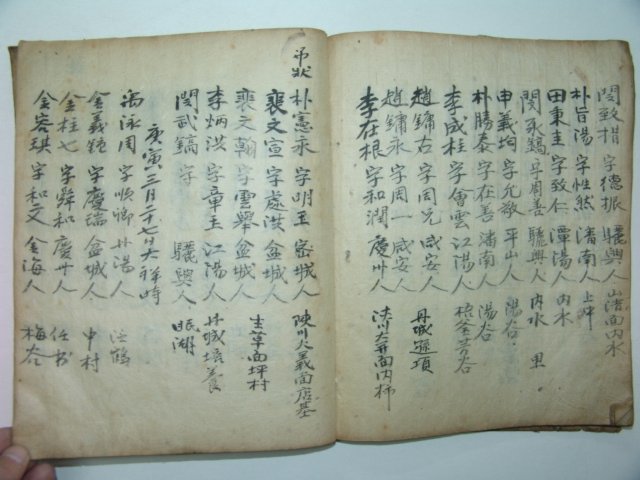 閔致楷 字德振 驪興人 山淸面內水
朴旨陽 字性然 潘南人 上坪
田秉圭 字致仁 潭陽人 內水
閔丞鎬 字周善 驪興人 內水 里
申義均 字允敬 平山人 陽谷
朴勝泰 字在善 潘南人 陽谷
李成柱 字會雲 江陽人
趙鏞右 字周元 咸安人 丹城 項
趙鏞永 字周一 咸安人
李在根 字和潤 慶州人 陜川 面內
弔狀
朴憲永 字明玉 密城人 陜川大義面店基
裵文宣 字處洪 盆城人
裵文翰 字雲擧 盆城人 生草面坪村
李炳洪 字章玉 江陽人 丹城培養
閔武鎬 字 驪興人 眠湖
庚寅三月二十七日大祥時
禹泳周 字順卿 丹陽人 鶴
金義鍾 字慶瑞 盆城人 中村
金柱七 字舜和 慶州人
金容琪 字和文 金海人 梅谷